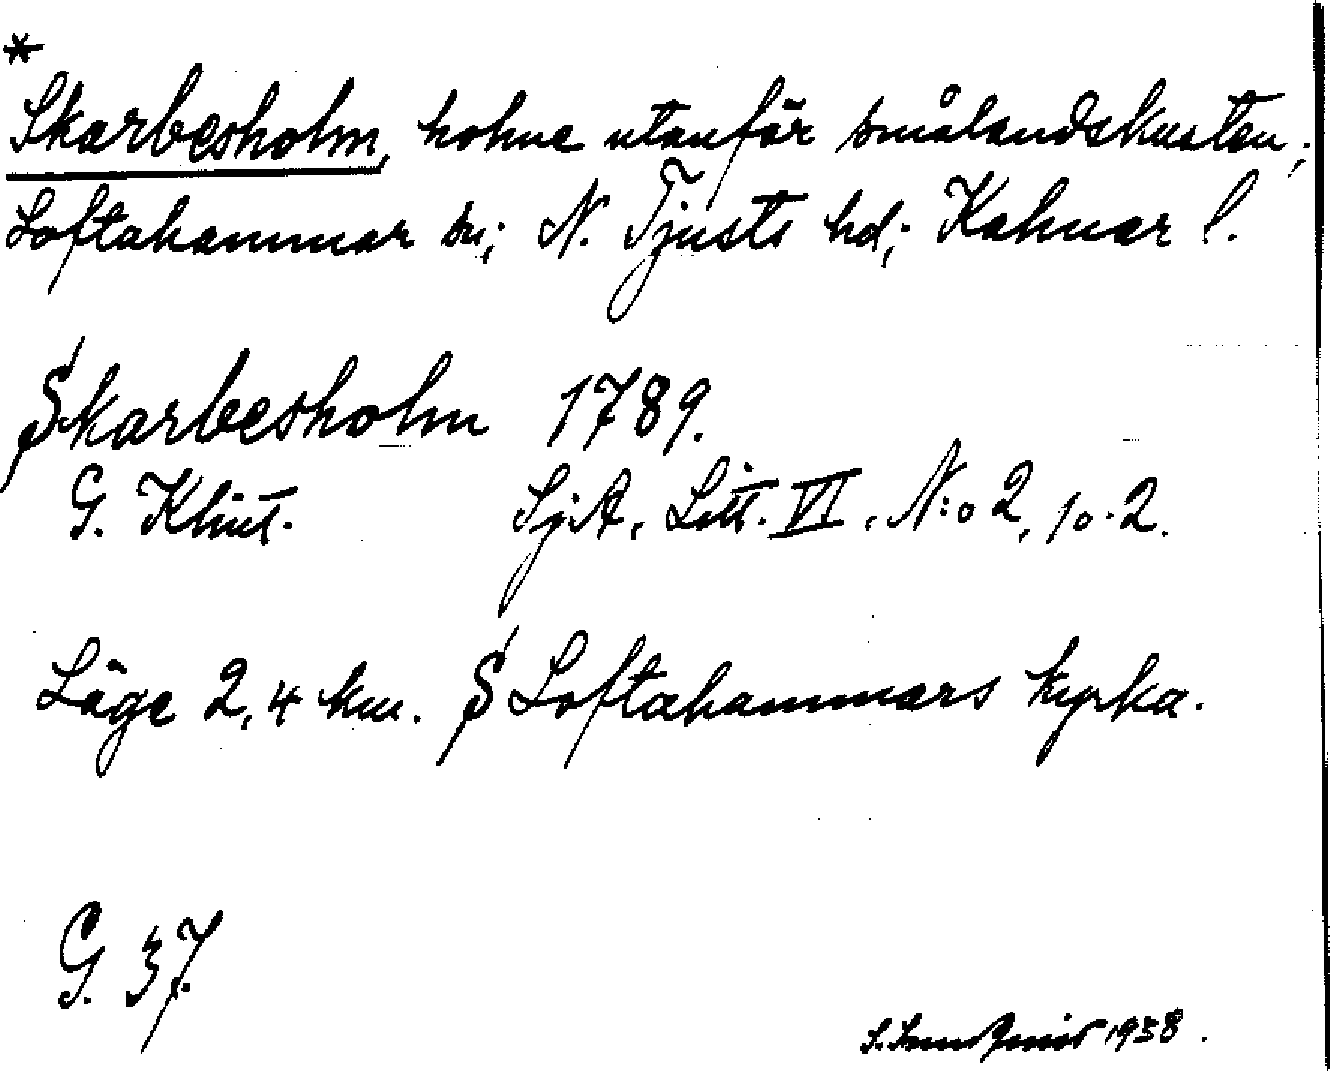 *
Skarbesholm, holme utanför smålandskusten;
Loftahammar sn; N. Tjusts hd; Kalmar l.
Skarbesholm 1789.
G. Klint. SjA, Litt. VI, N:o 2, p. 2.
Läge 2,4 km. S Loftahammars kyrka.
G. 37
1938.